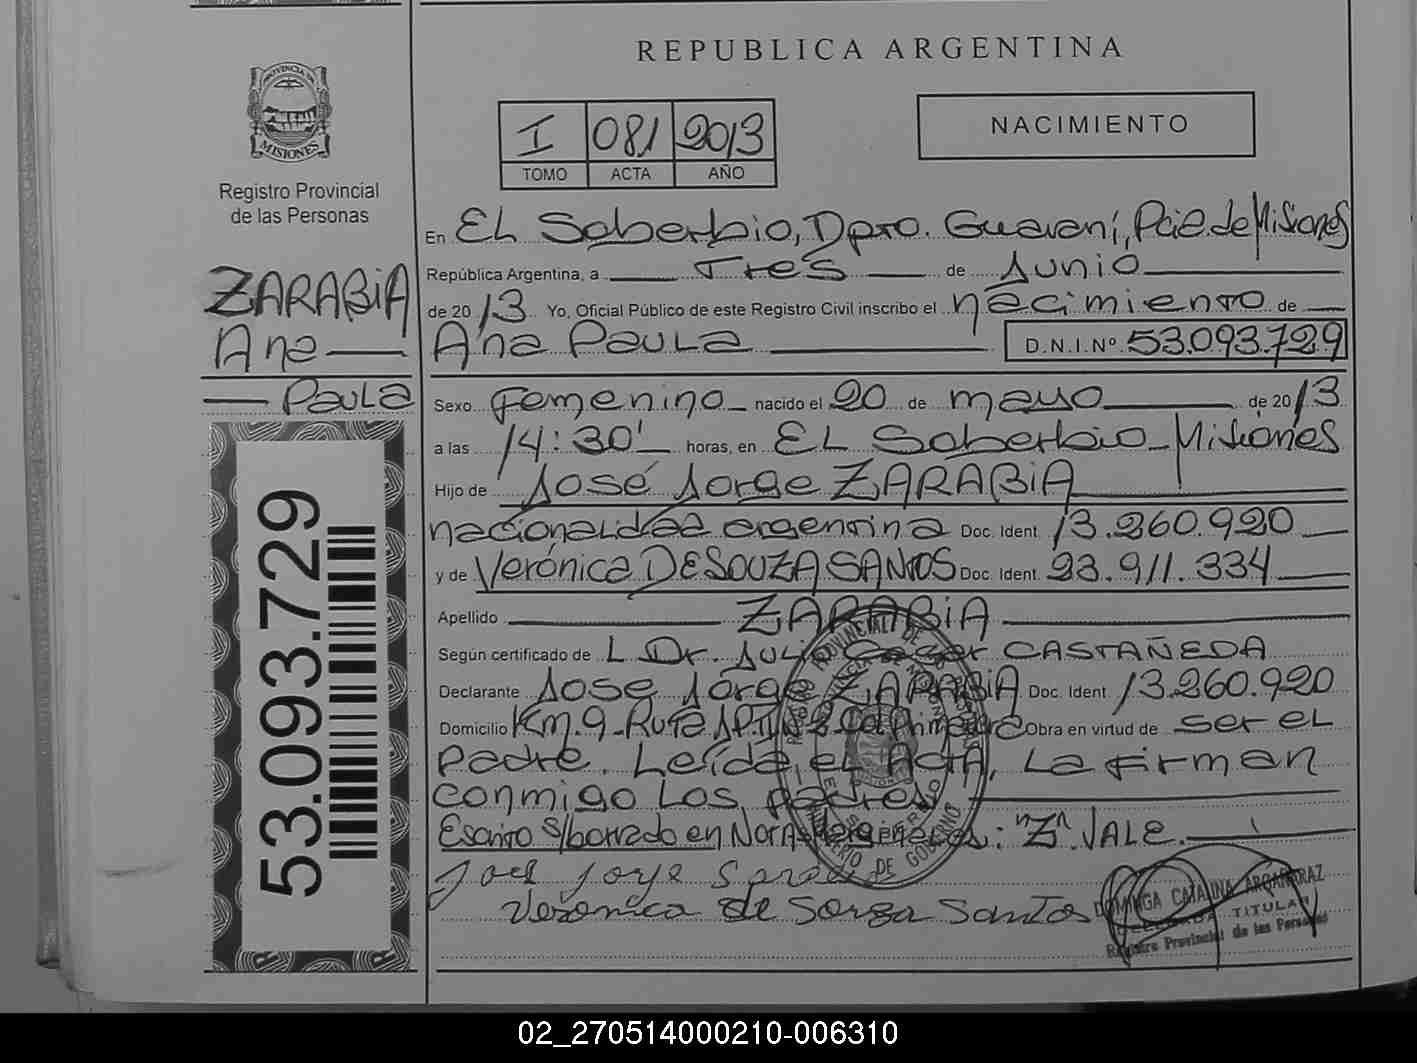 REPUBLICA ARGENTINA
PROVINCIA DE
MISIONES
Registro Provincial
de las Personas
I 081 2013
TOMO ACTA AÑO
NACIMIENTO
ZARABIA
Ana
Paula
53.093.729
En EL Soberbio, Dpto. Guaraní, Pcia. de Misiones
República Argentina, a Tres de Junio
de 2013 Yo, Oficial Público de este Registro Civil inscribo el nacimiento de
Ana Paula D.N.I.Nº 53.093.729
Sexo Femenino nacido el 20 de mayo de 2013
a las 14:30' horas, en EL Soberbio_Misiones
Hijo de José Jorge ZARABIA
nacionalidad argentina Doc. Ident. 13.260.920
y de Verónica DE SOUZA SANTOS Doc. Ident. 23.911.334
Apellido ZARABIA
Según certificado de L Dr. Julio Cesar CASTAÑEDA
Declarante José Jorge ZARABIA Doc. Ident. 13.260.920
Domicilio Km.9_Ruta Obra en virtud de ser el
Padre. Leída el Acta, La firman
conmigo Los padres
Escrito s/borrado en Notas Marginales: "Z". VALE.
Jose Jorge
Veronica de Sorza Santos
DOMINGA CATALINA ARGAÑARAZ
DELEGADA TITULAR
Registro Provincial de las Personas
02_270514000210-006310